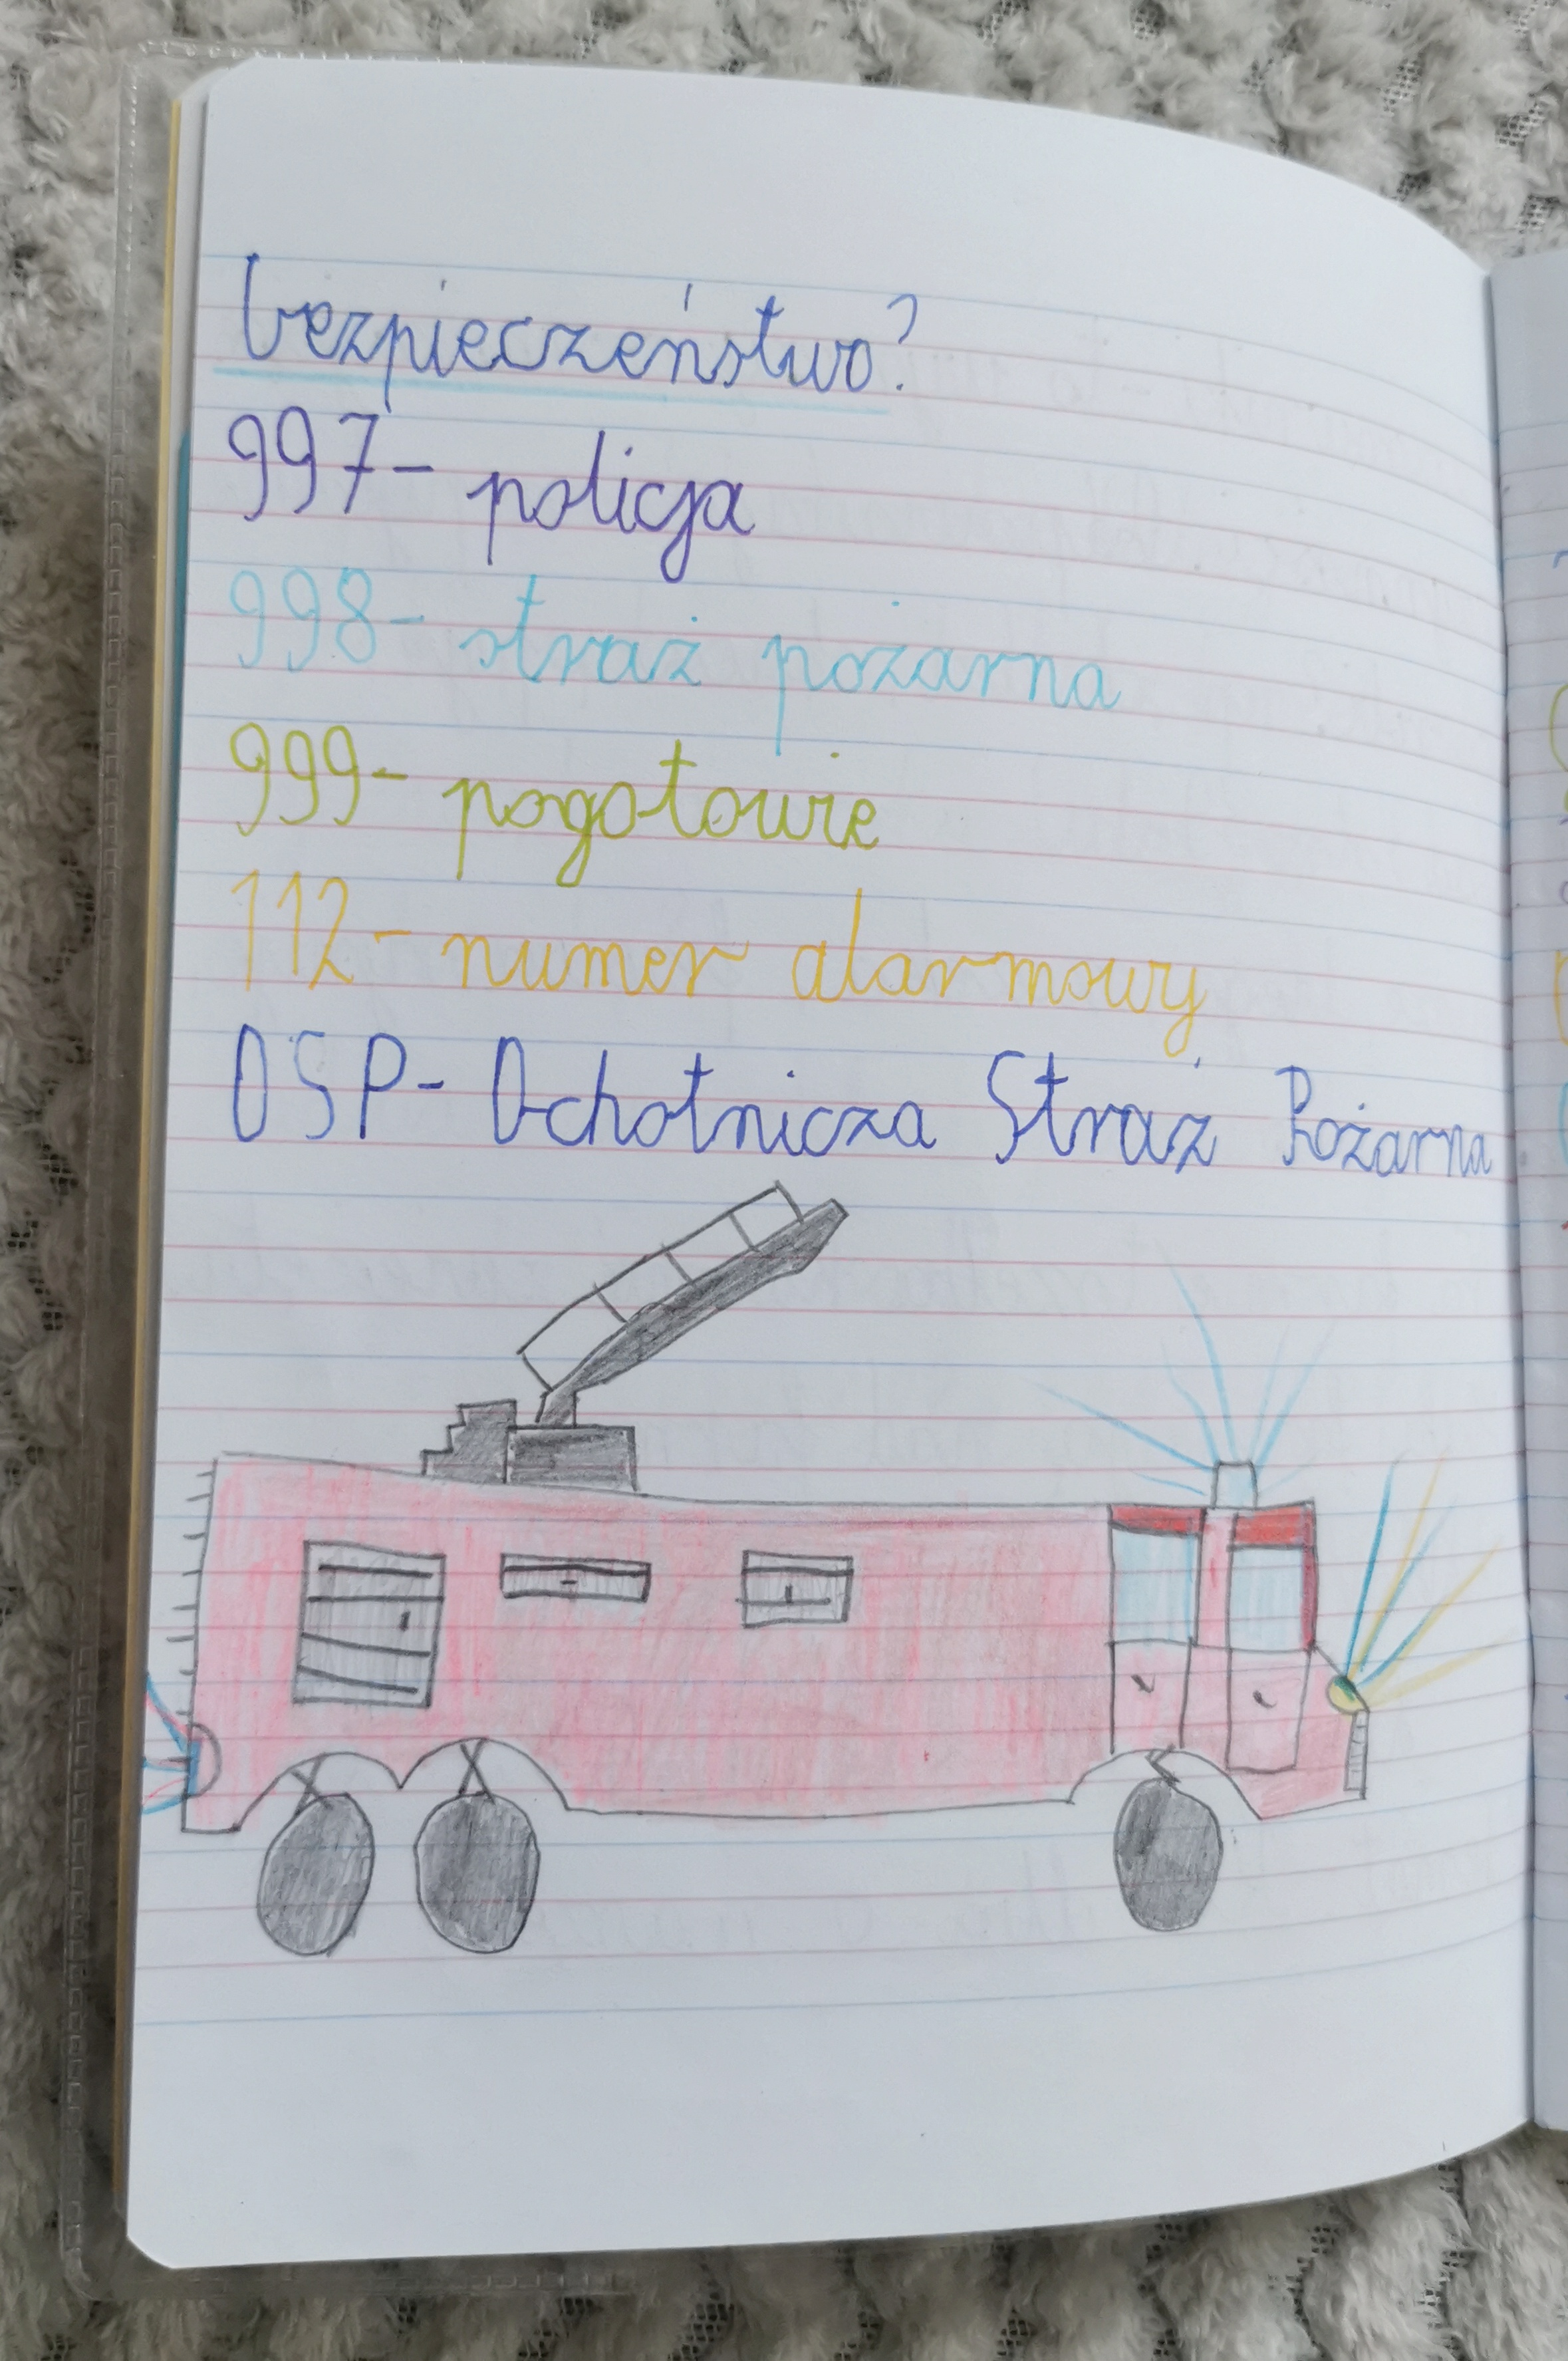 bezpieczeństwo?
997- policja
998- straż pożarna
999- pogotowie
112- numer alarmowy
OSP- Ochotnicza Straż Pożarna